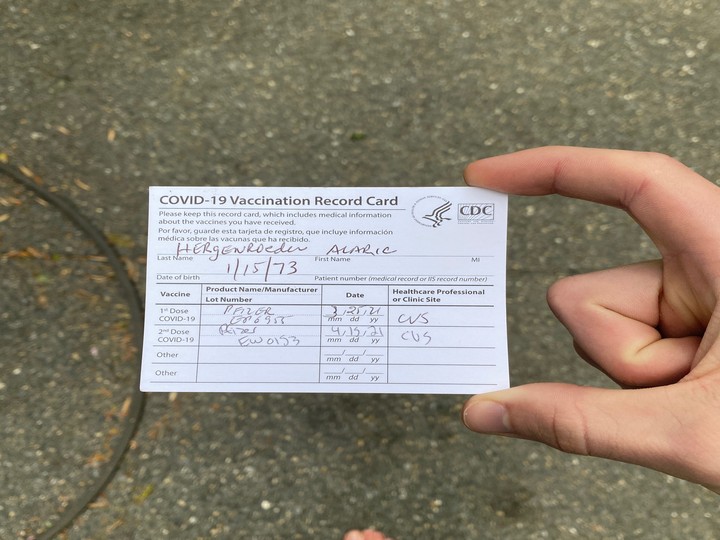 COVID-19 Vaccination Record Card
CDC
Please keep this record card, which includes medical information
about the vaccines you have received.
Por favor, guarde esta tarjeta de registro, que incluye información
médica sobre las vacunas que ha recibido.
HERGENROEDER ALARIC
Last Name First Name MI
1/15/73
Date of birth Patient number (medical record or IIS record number)
Vaccine Product Name/Manufacturer Date Healthcare Professional
Lot Number or Clinic Site
1st Dose PFIZER 3,25,21 CVS
COVID-19 mm dd yy
2nd Dose Pfizer 4,15,21 CVS
COVID-19 EW0153 mm dd yy
Other __/__/__
mm dd yy
Other __/__/__
mm dd yy